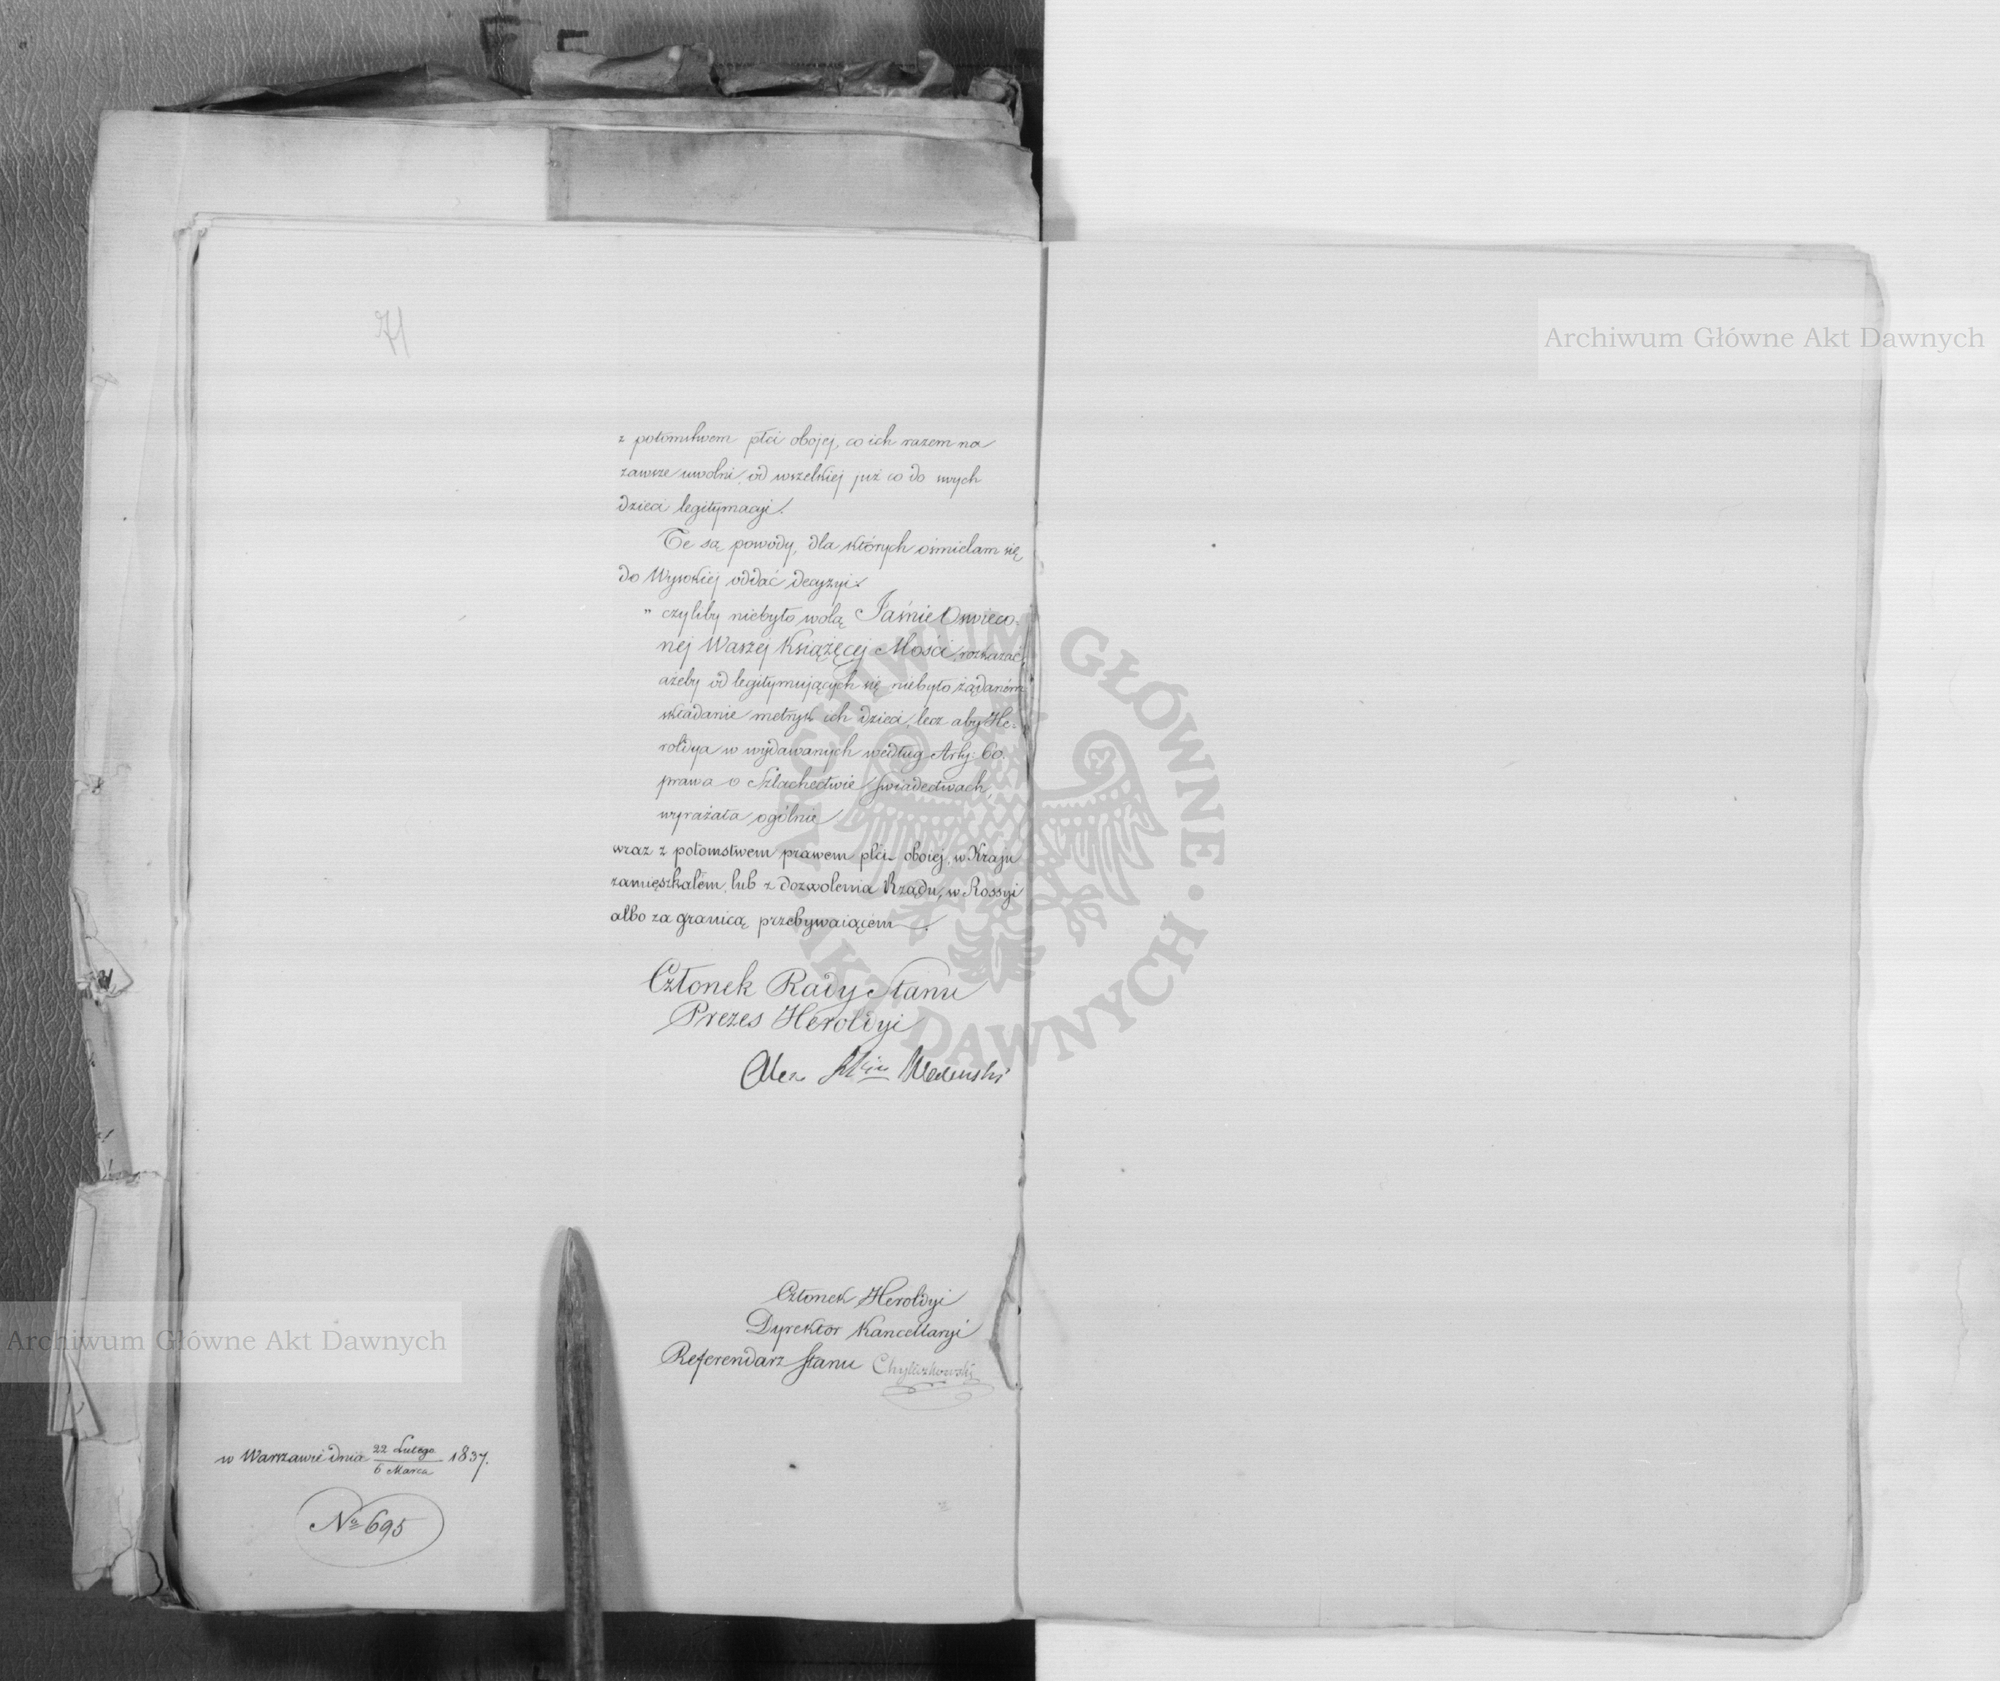 71
z potomstwem płci obojej, co ich razem na
zawsze uwolni, od wszelkiej już co do swych
dzieci legitymacyi.
Te są powody, dla których ośmielam się
do Wysokiej oddać decyzyi:
„ czyliby niebyło wolą Jaśnie Oswieco-
nej Waszej Książęcej Mości, rozkazać,
ażeby od legitymujących się niebyło żądaném
składanie metryk ich dzieci, lecz aby He-
roldya w wydawanych według Arty: 60.
prawa o Szlachectwie świadectwach,
wyrażała ogólnie
wraz z potomstwem prawem płci oboiej, w Kraju
zamieszkałém, lub z dozwolenia Rządu, w Rossyi
albo za granicą przebywaiącém.
Członek Rady Stanu
Prezes Heroldyi
Alex
Członek Heroldyi
Dyrektor Kancellaryi
Referendarz Stanu Chyliczkowski
w Warszawie dnia 22 Lutego / 6 Marca 1837.
No 695
Archiwum Główne Akt Dawnych
Archiwum Główne Akt Dawnych
ARCHIWUM GŁÓWNE · AKT DAWNYCH ·